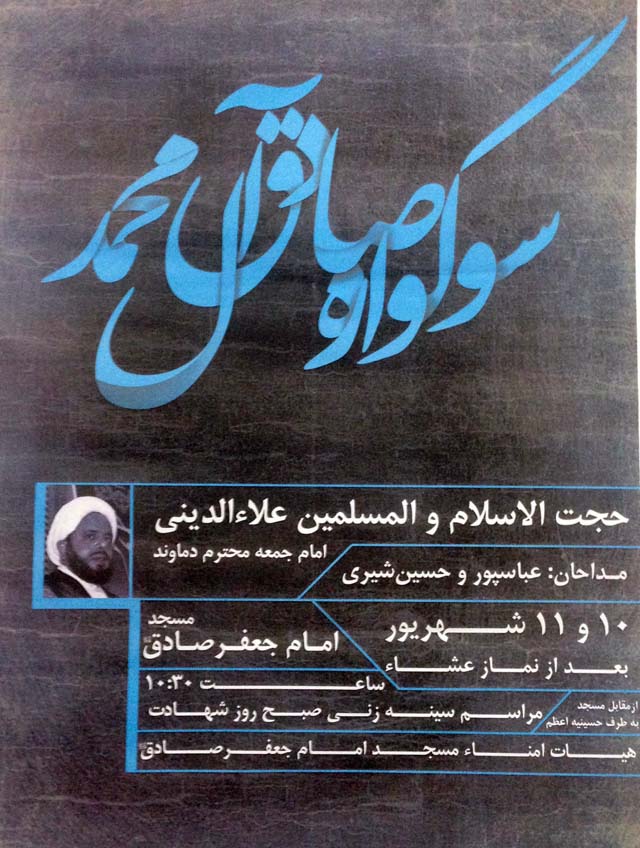 سوگواره صادق آل محمد
حجت الاسلام و المسلمین علاءالدینی
امام جمعه محترم دماوند
مداحان: عباسپور و حسین‌شیری
۱۰ و ۱۱ شهریور
بعد از نماز عشاء
مسجد
امام جعفر صادق
ساعت ۱۰:۳۰
مراسم سینه زنی صبح روز شهادت
از مقابل مسجد
به طرف حسینیه اعظم
هیات امناء مسجد امام جعفر صادق